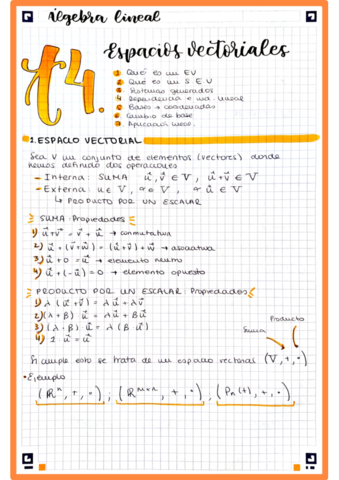 Álgebra lineal
t4.
Espacios vectoriales
1 Qué es un EV
2 Qué es un S.E.V
3 Sistemas generadores
4 Dependencia e ind. lineal
5 Bases + coordenadas
6 Cambio de base
7 Aplicaciones
1. ESPACIO VECTORIAL
Sea V un conjunto de elementos (vectores) donde
hemos definido dos operaciones
- Interna: SUMA u⃗, v⃗ ∈ V, u⃗+v⃗ ∈ V
- Externa: u ∈ V, α ∈ , α u⃗ ∈ V
↳ PRODUCTO POR UN ESCALAR
SUMA: Propiedades
1) u⃗+v⃗ = v⃗ + u⃗ → conmutativa
2) u⃗ + (v⃗+w⃗) = (u⃗+v⃗) + w⃗ → asociativa
3) u⃗ + 0 = u⃗ → elemento neutro
4) u⃗ + (-u⃗) = 0 → elemento opuesto
PRODUCTO POR UN ESCALAR: Propiedades
1) λ (u⃗ + v⃗) = λu⃗ + λv⃗
2) (λ + β) u⃗ = λu⃗ + βu⃗
3) (λ · β) u⃗ = λ (β u⃗)
4) 1 · u⃗ = u⃗
Producto
Suma
Si cumple esto se trata de un espacio vectorial (V, +, ·)
• Ejemplo
(ℝⁿ, +, ·), (ℝᵐˣⁿ, +, ·), (Pₙ(t), +, ·)